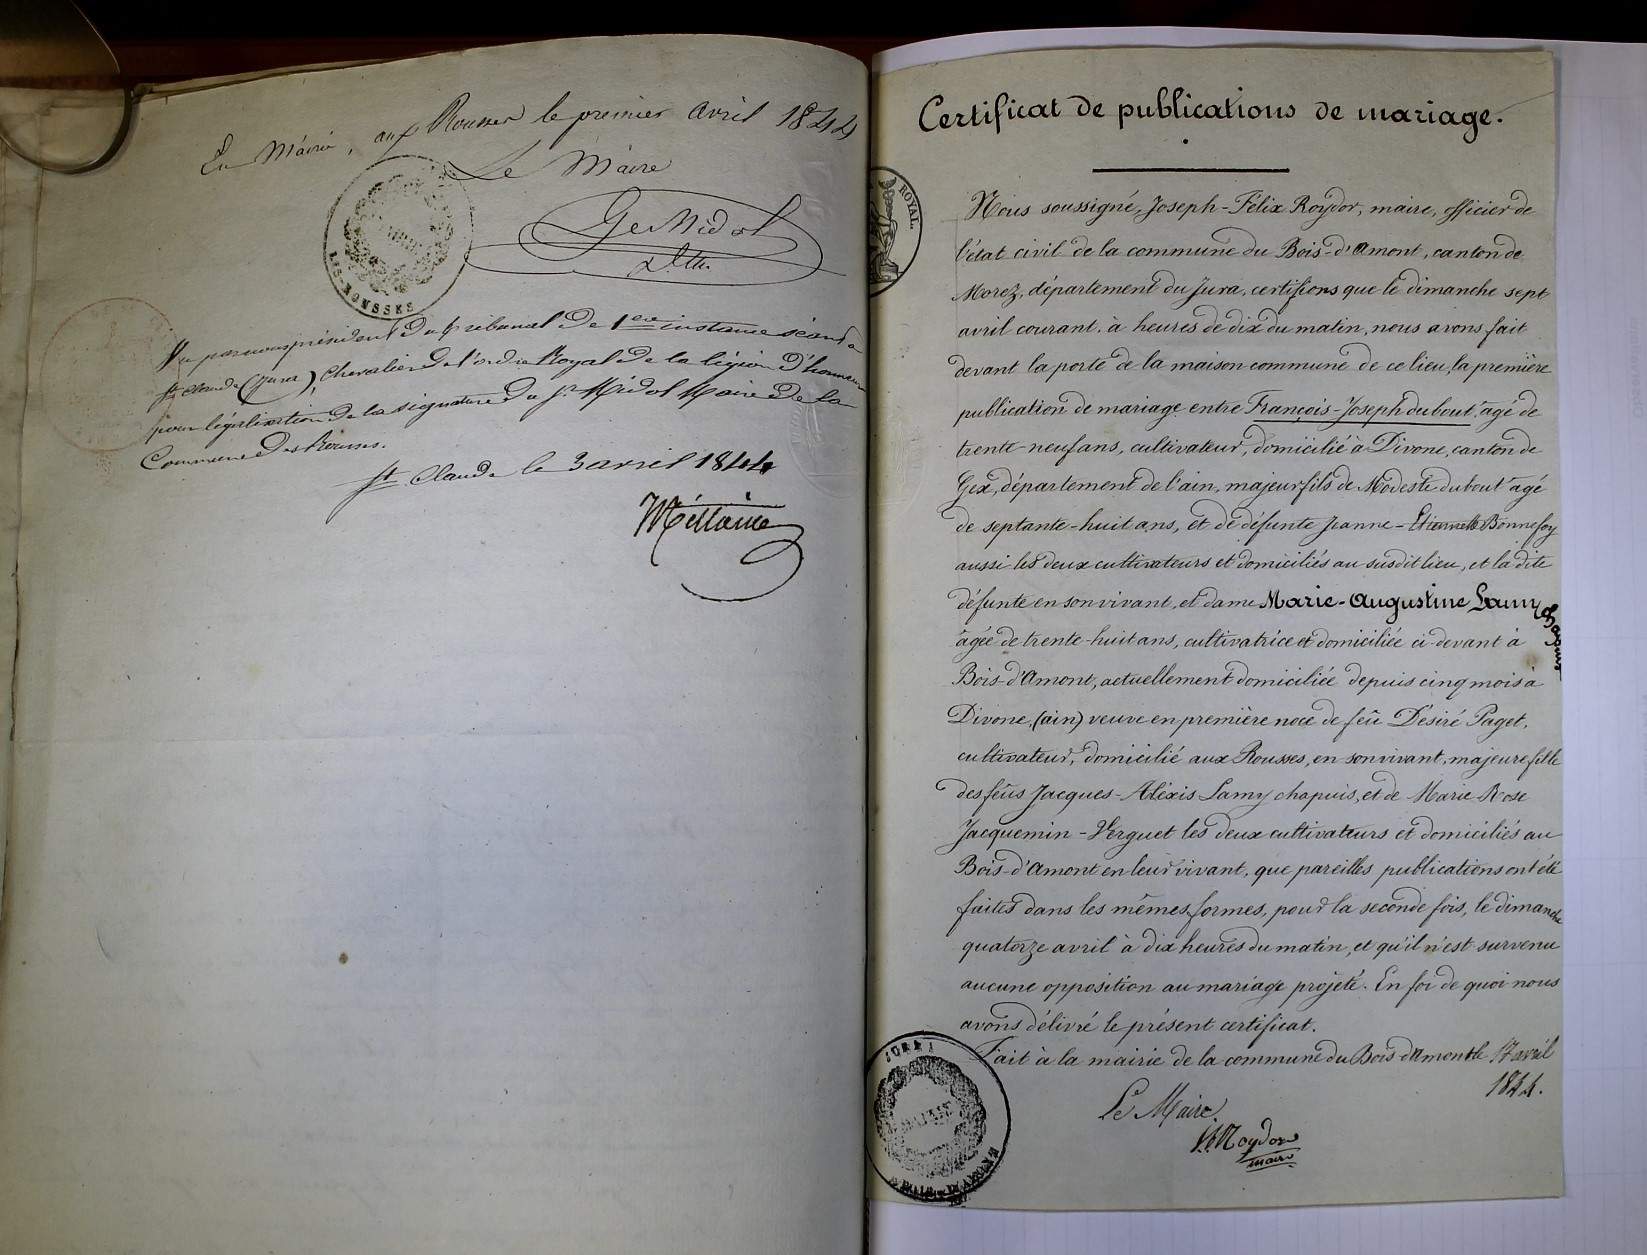 En Mairie, aux Rousses le premier avril 1844
Le Maire
LES-ROUSSES
MAIRIE
Vu par nous président du tribunal de 1ere instance séant à
St Claude (Jura), Chevalier de l'ordre Royal de la légion d'honneur
pour légalisation de la signature du Sr Midol Maire de la
Commune des Rousses.
St Claude le 3 avril 1844
Certificat de publications de mariage.
ROYAL.
Nous soussigné, Joseph-Félix Roydor, maire, officier de
l'état civil de la commune du Bois-d'Amont, canton de
Morez, département du Jura, certifions que le dimanche sept
avril courant, à heures de dix du matin, nous avons fait
devant la porte de la maison commune de ce lieu, la première
publication de mariage entre François-Joseph dubout, agé de
trente neuf ans, cultivateur, domicilié à Divone, canton de
Gex, département de l'ain, majeur fils de Modeste dubout agé
de septante-huit ans, et de défunte Jeanne-Etiennette Bonnefoy
aussi les deux cultivateurs et domiciliés au susdit lieu, et la dite
défunte en son vivant, et dame Marie-Augustine Lamy chapuis
âgée de trente-huit ans, cultivatrice et domiciliée ci-devant à
Bois-d'Amont, actuellement domiciliée depuis cinq mois à
Divone, (ain) veuve en première noce de feû Désiré Paget,
cultivateur, domicilié aux Rousses, en son vivant, majeure fille
des feûs Jacques-Aléxis Lamy chapuis, et de Marie Rose
Jacquemin-Verguet les deux cultivateurs et domiciliés au
Bois-d'Amont en leur vivant, que pareilles publications ont été
faites dans les mêmes formes, pour la seconde fois, le dimanche
quatorze avril à dix heures du matin, et qu'il n'est survenu
aucune opposition au mariage projeté. En foi de quoi nous
avons délivré le présent certificat.
Fait à la mairie de la commune du Bois-d'Amont le 17 avril
1844.
Le Maire.
Roydor
maire
MAIRIE